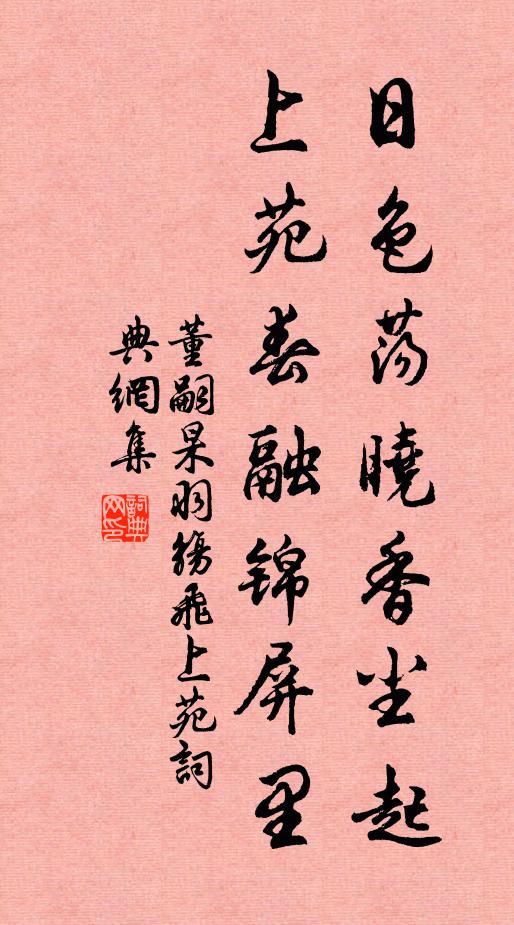 日色荡曉香尘起
上苑春融錦屏里
董嗣杲羽觴飛上苑詞
典網集
詞典
网印